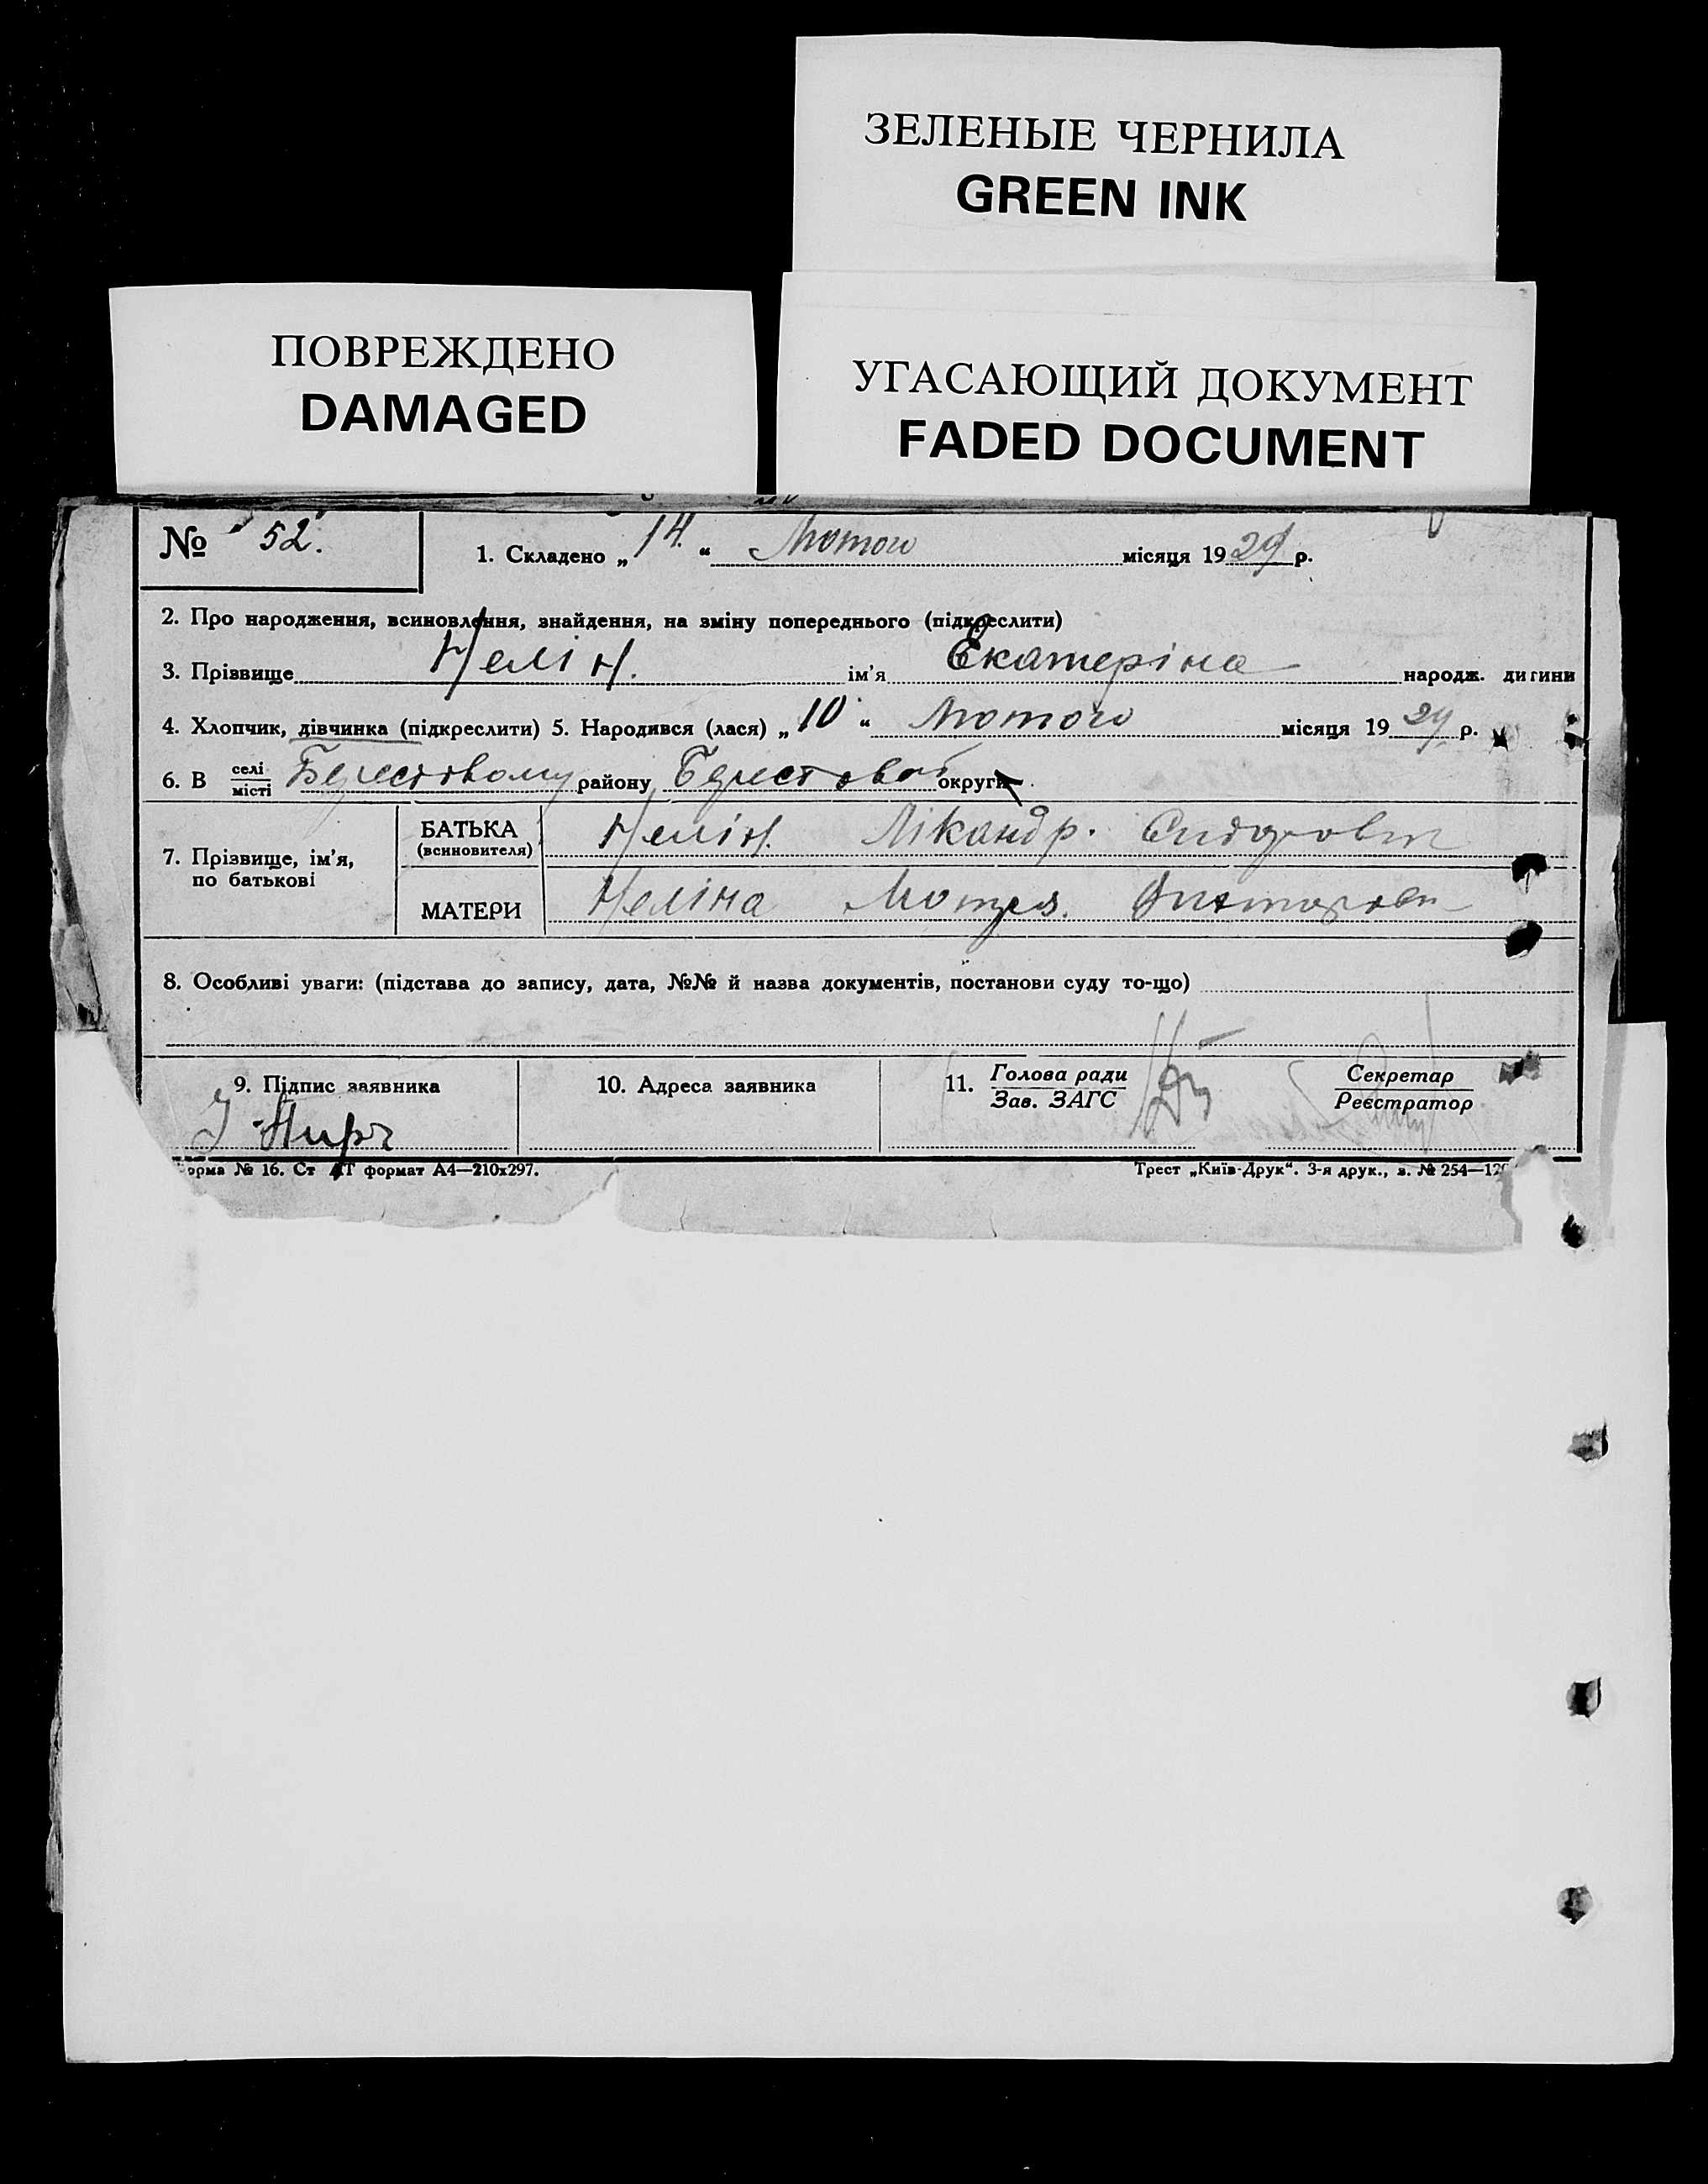 ЗЕЛЕНЫЕ ЧЕРНИЛА
GREEN INK
ПОВРЕЖДЕНО
DAMAGED
УГАСАЮЩИЙ ДОКУМЕНТ
FADED DOCUMENT
№ 52. 1. Складено „14.“ Лютого місяця 1929 р.
2. Про народження, всиновлення, знайдення, на зміну попереднього (підкреслити)
3. Прізвище Нелін. ім'я Екатеріна народж. дитини
4. Хлопчик, дівчинка (підкреслити) 5. Народився (лася) „10“ Лютого місяця 1929 р.
6. В селі
місті Берестовому району Берестової округи
7. Прізвище, ім'я,
по батькові
БАТЬКА
(всиновителя) Нелін. Нікандр. Сидорович
МАТЕРИ Неліна Мотря.
8. Особливі уваги: (підстава до запису, дата, №№ й назва документів, постанови суду то-що)
9. Підпис заявника
10. Адреса заявника
11. Голова ради
Зав. ЗАГС
Секретар
Реєстратор
орма № 16. Ст АТ формат А4—210х297.
Трест „Київ-Друк“. 3-я друк., з. № 254—12